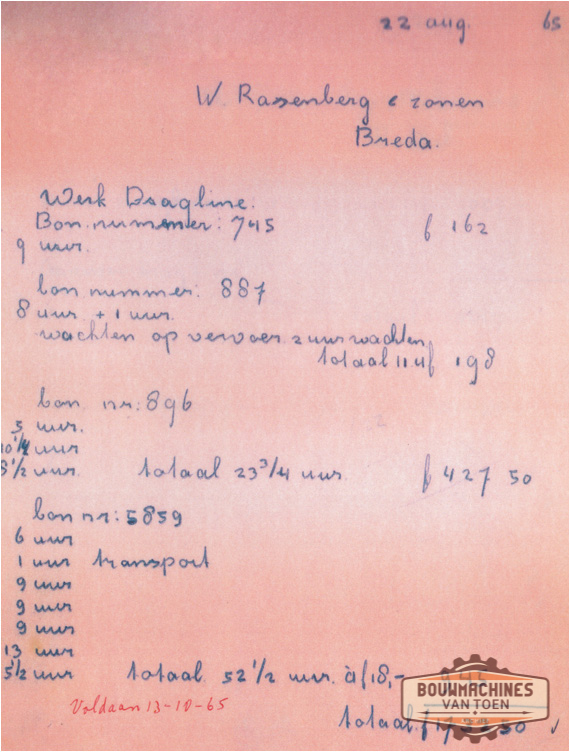 22 aug. 65
W. Rasenberg e zonen
Breda.
Werk Dsagline:
Bon nummer: 745 f 162
9 uur.
bon nummer: 887
8 uur + 1 uur.
wachten op vervoer 2 uur wachten
totaal 11 u f 198
bon nr: 896
5 uur.
10 1/4 uur
8 1/2 uur. totaal 23 3/4 uur. f 427 50
bon nr: 5859
6 uur
1 uur transport
9 uur
9 uur
9 uur
13 uur
5 1/2 uur totaal 52 1/2 uur. à f 18,-
Voldaan 13-10-65
totaal f 50
BOUWMACHINES
VAN TOEN